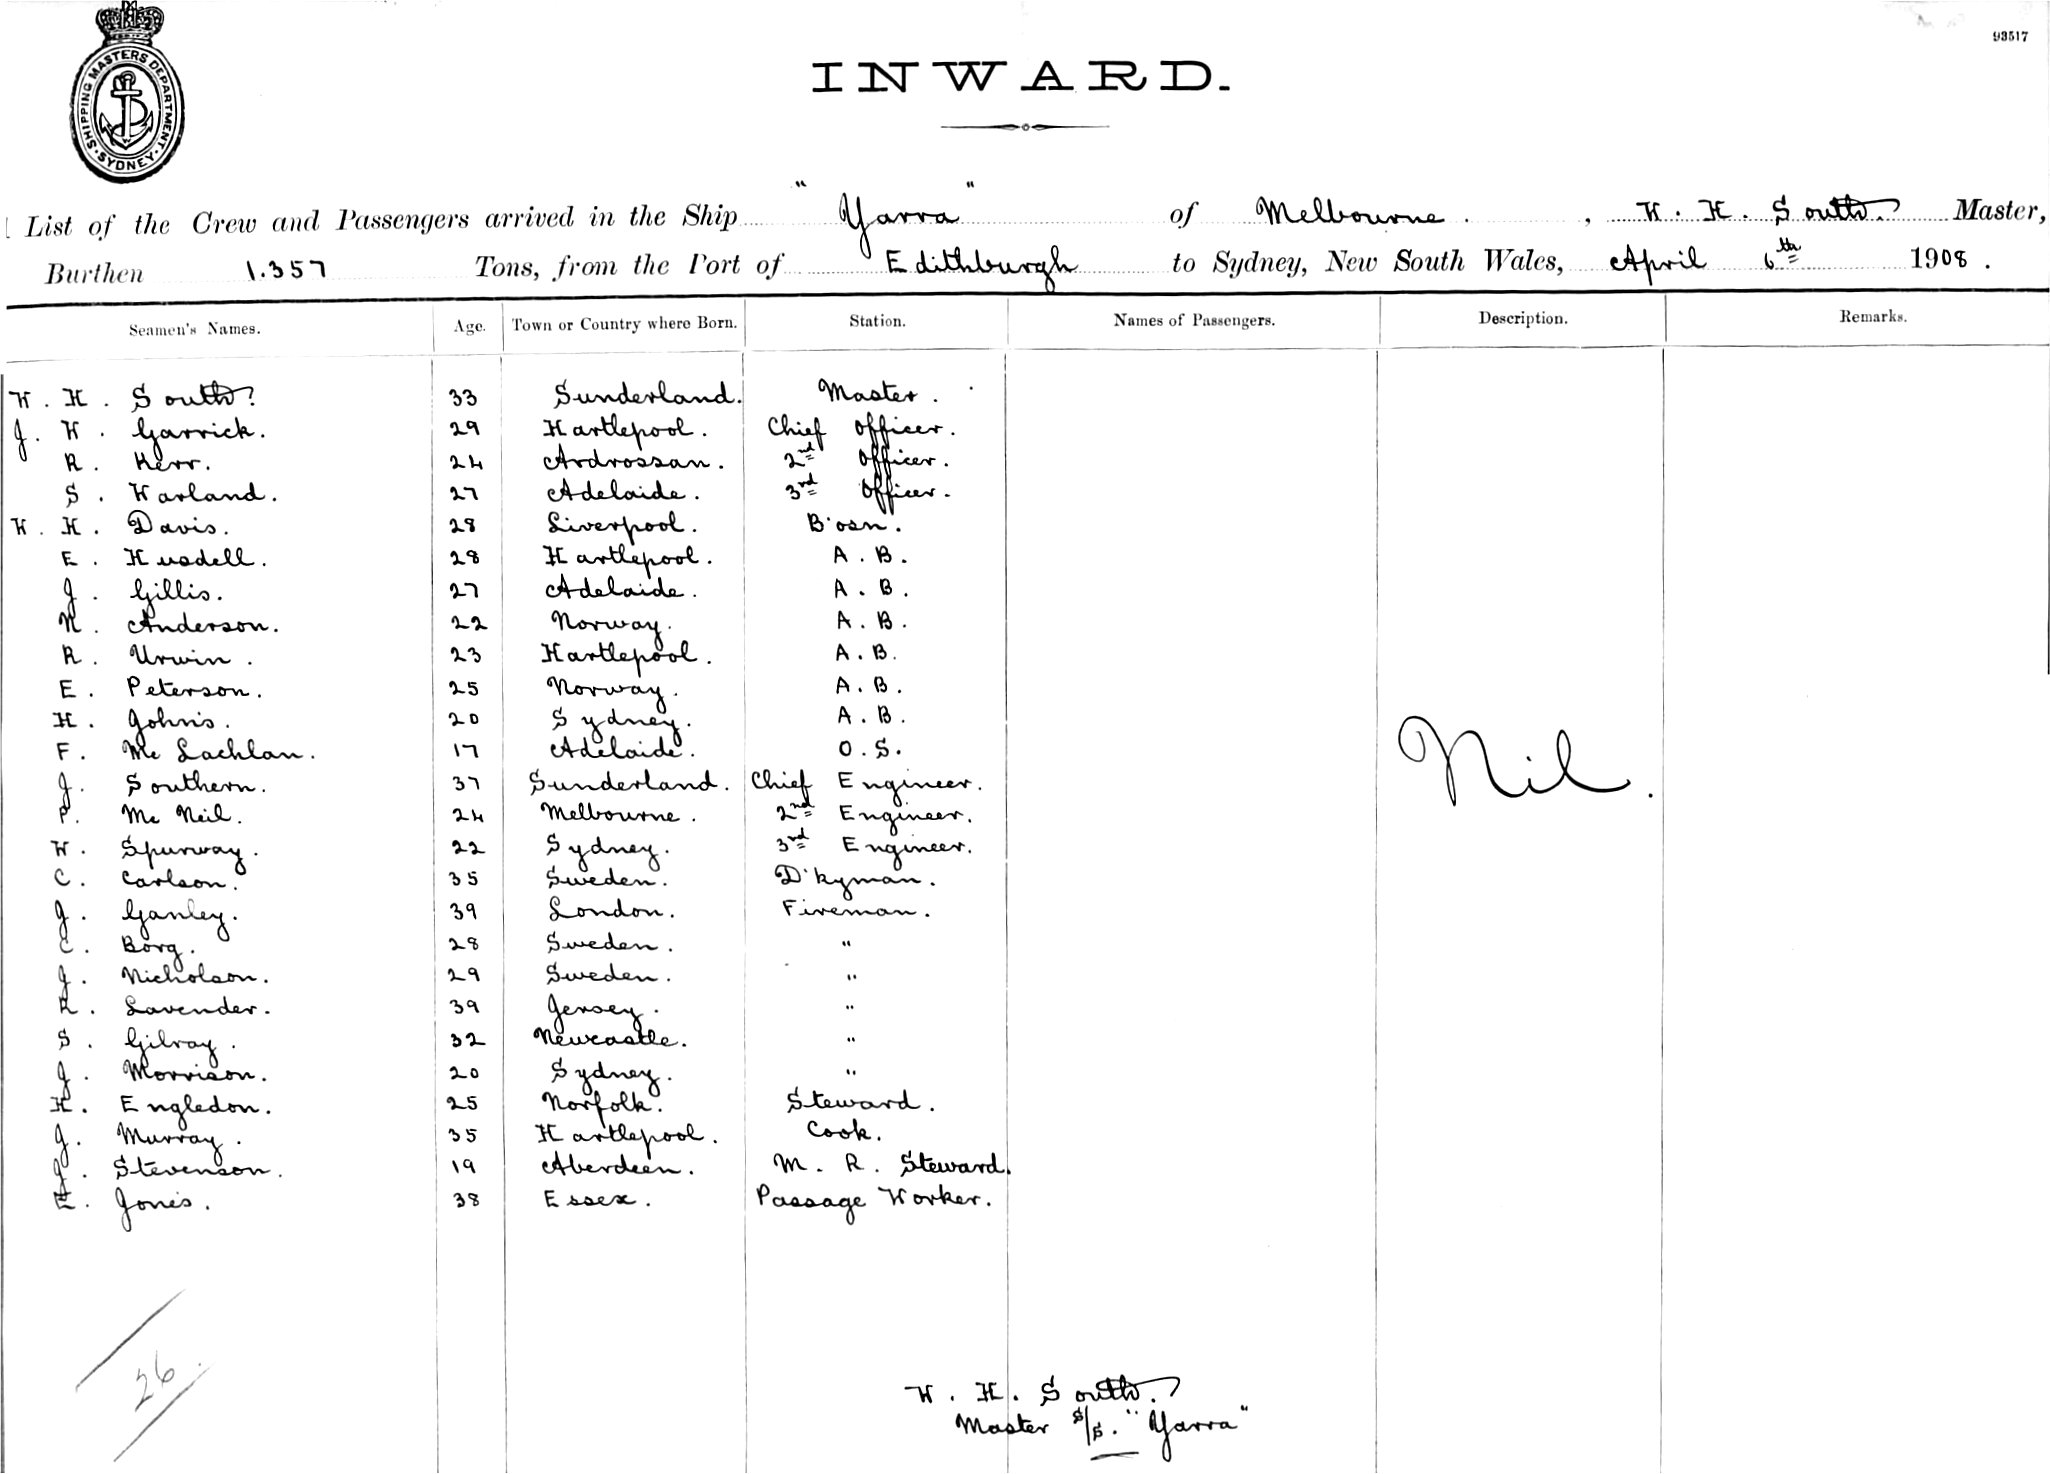 SHIPPING MASTERS DEPARTMENT. SYDNEY.
93517
INWARD.
List of the Crew and Passengers arrived in the Ship "Yarra" of Melbourne. , W. H. South. Master,
Burthen 1.357 Tons, from the Port of Edithburgh to Sydney, New South Wales, April 6th 1908.
Seamen's Names. Age. Town or Country where Born. Station. Names of Passengers. Description. Remarks.
W. H. South. 33 Sunderland. Master.
J. W. Garrick. 29 Hartlepool. Chief Officer.
R. Kerr. 24 Ardrossan. 2nd Officer.
S. Warland. 27 Adelaide. 3rd Officer.
W. H. Davis. 28 Liverpool. B'osn.
E. Husdell. 28 Hartlepool. A. B.
J. Gillis. 27 Adelaide. A. B.
N. Anderson. 22 Norway. A. B.
R. Urwin. 23 Hartlepool. A. B.
E. Peterson. 25 Norway. A. B.
H. Johns. 20 Sydney. A. B.
F. Mc Lachlan. 17 Adelaide. O. S.
J. Southern. 37 Sunderland. Chief Engineer.
Nil.
P. Mc Neil. 24 Melbourne. 2nd Engineer.
W. Spurway. 22 Sydney. 3rd Engineer.
C. Carlson. 35 Sweden. D'kyman.
J. Ganley. 39 London. Fireman.
C. Borg. 28 Sweden. "
J. Nicholson. 29 Sweden. "
R. Lavender. 39 Jersey. "
S. Gilray. 32 Newcastle. "
J. Morrison. 20 Sydney. "
H. Engledon. 25 Norfolk. Steward.
J. Murray. 35 Hartlepool. Cook.
J. Stevenson. 19 Aberdeen. M. R. Steward.
E. Jones. 38 Essex. Passage Worker.
26.
W. H. South.
Master S/S. "Yarra"